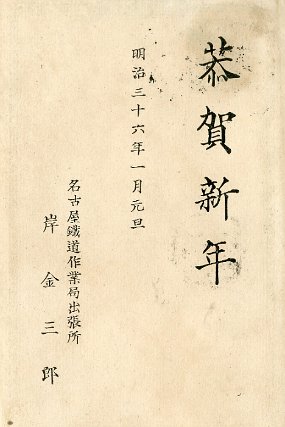 恭賀新年
明治三十六年一月元旦
名古屋鐵道作業局出張所
岸金三郎